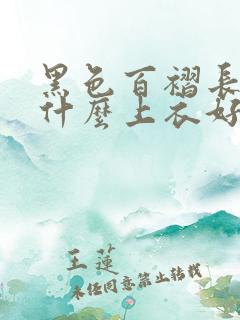 黑色百褶長
什麼上衣好
王蓮
未经同意禁止转载